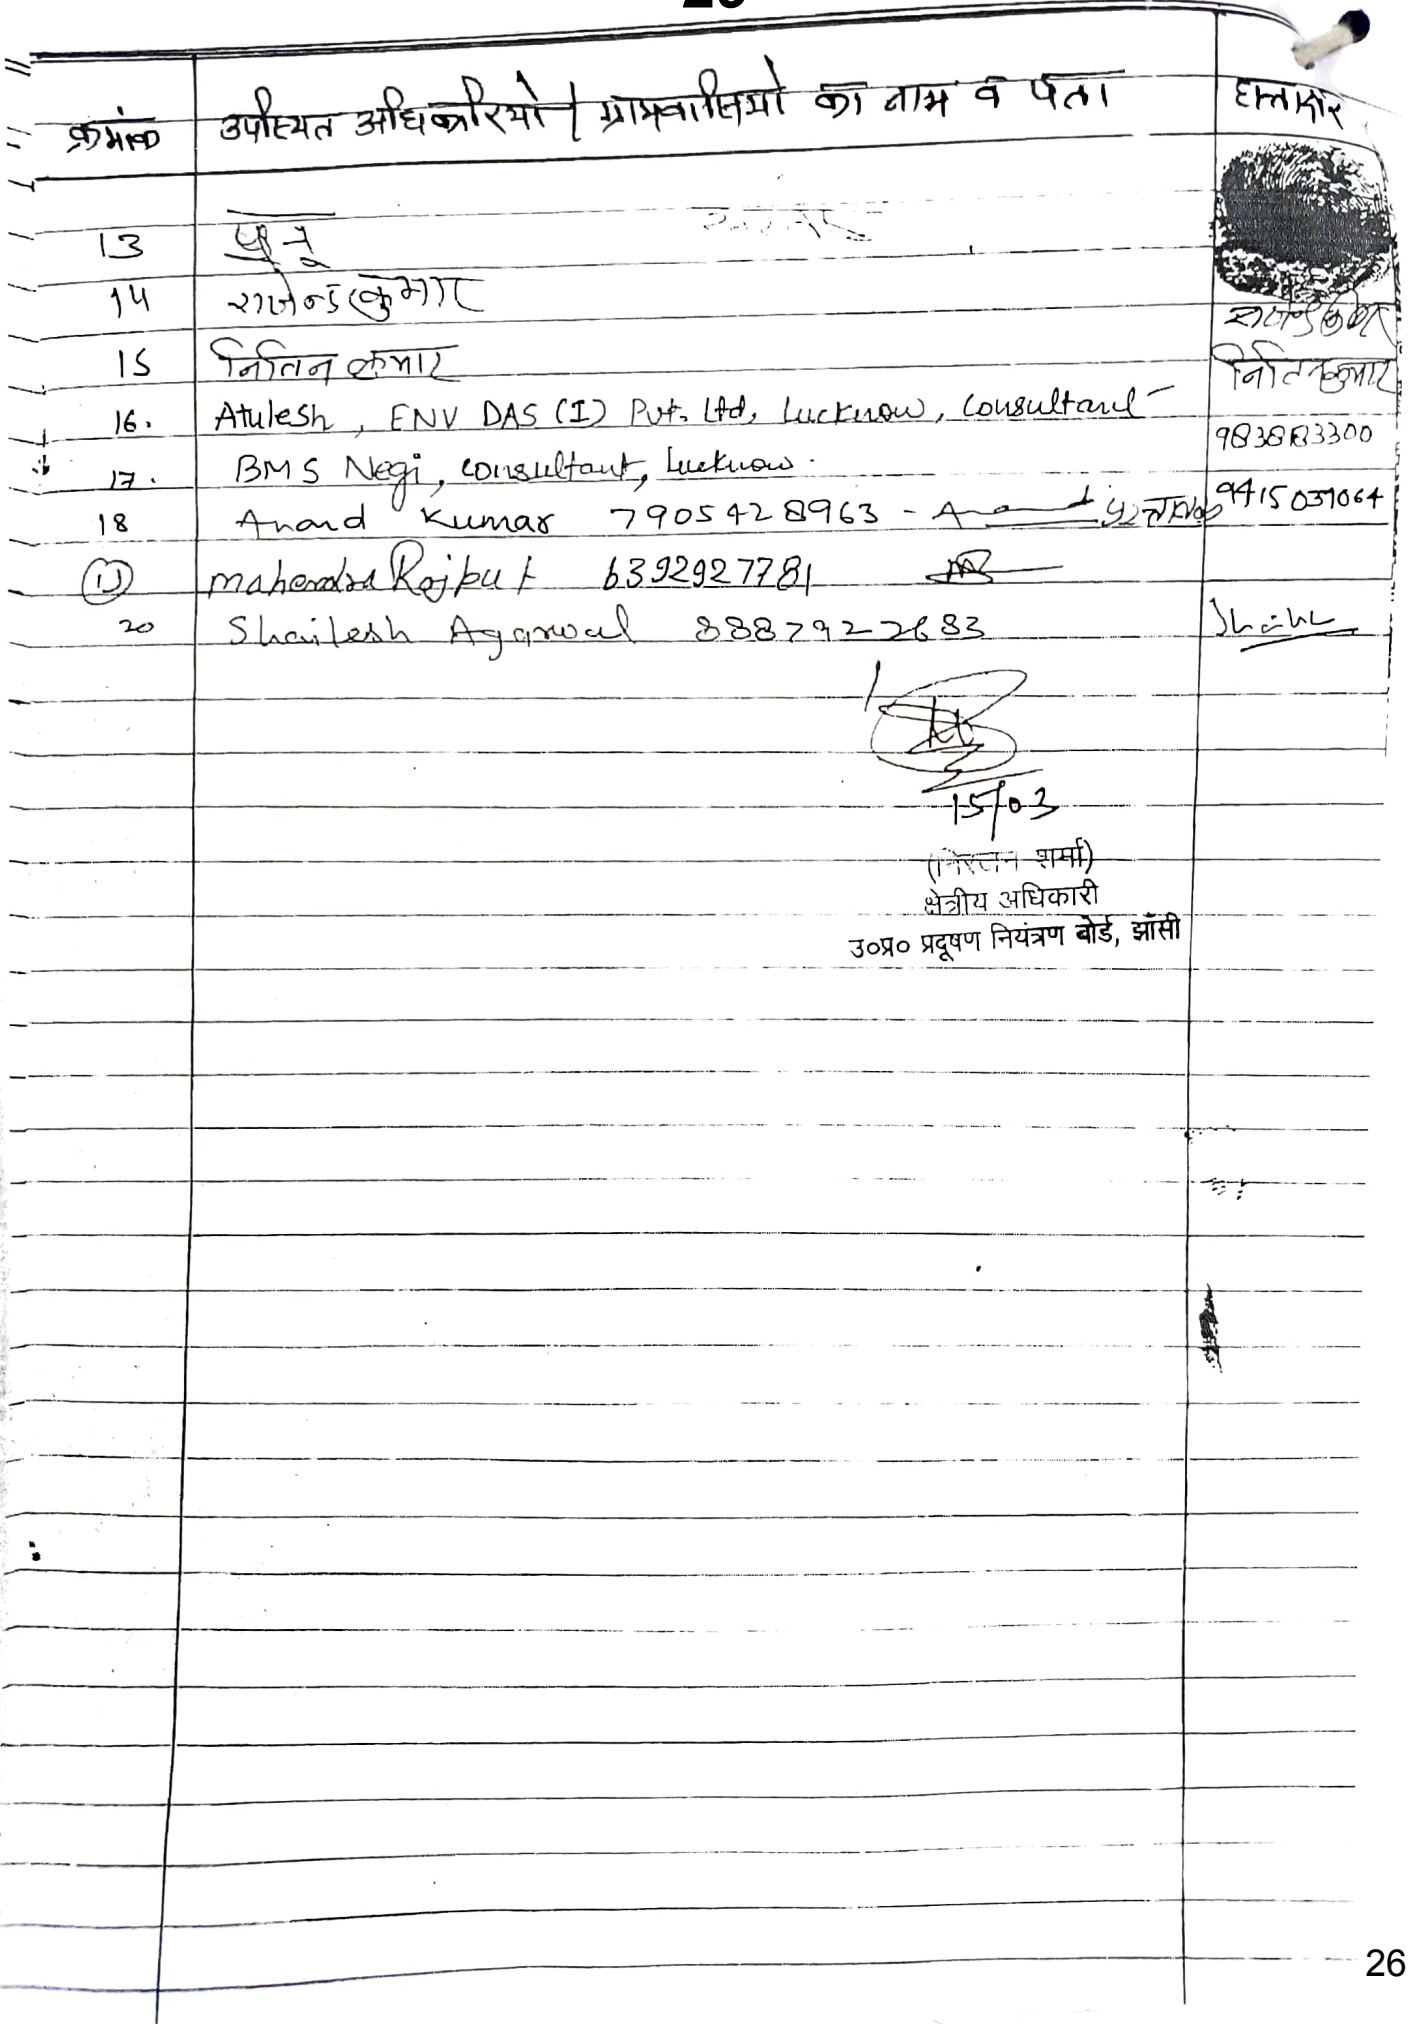 क्रमांक उपस्थित अधिकारियो / ग्रामवासियो का नाम व पता हस्ताक्षर
13
14 राजेन्द्र कुमार
15 नितिन कुमार नितिन कुमार
16. Atulesh, ENV DAS (I) Pvt. Ltd, Lucknow, Consultant
17. BMS Negi, Consultant, Lucknow. 9415037064
18 Anand Kumar 7905428963 -
Mahendra Rajput 6392927781
20 Shailesh Agarwal 8887922683
15/03
(निरंजन शर्मा)
क्षेत्रीय अधिकारी
उ०प्र० प्रदूषण नियंत्रण बोर्ड, झाँसी
26